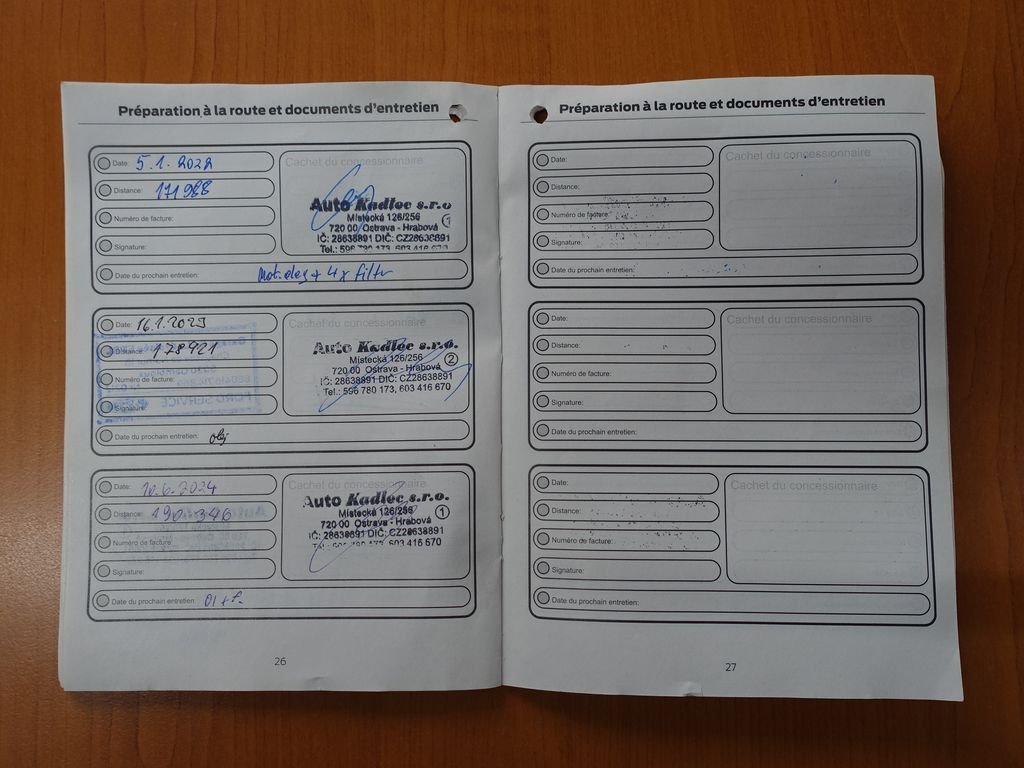 Préparation à la route et documents d'entretien
Date: 5.1.2022
Distance: 171988
Numéro de facture:
Signature:
Date du prochain entretien:
Cachet du concessionnaire
Auto Kadlec s.r.o
Místecká 126/256
720 00 Ostrava - Hrabová
IČ: 28638891 DIČ: CZ28638891
Tel.: 596 780 173, 603 416 670
Mot. olej + 4x filtr
Date: 16.1.2023
Distance: 178921
Numéro de facture:
Signature:
Date du prochain entretien: olej
Cachet du concessionnaire
Auto Kadlec s.r.o.
Místecká 126/256
720 00 Ostrava - Hrabová
IČ: 28638891 DIČ: CZ28638891
Tel.: 596 780 173, 603 416 670
FORD SERVICE
Date: 10.6.2024
Distance: 190 346
Numéro de facture
Signature:
Date du prochain entretien: Ol + f.
Cachet du concessionnaire
Auto Kadlec s.r.o.
Místecká 126/256
720 00 Ostrava - Hrabová
IČ: 28638891 DIČ: CZ28638891
Tel.: 596 780 173, 603 416 670
26
Préparation à la route et documents d'entretien
Date:
Distance:
Numéro de facture:
Signature:
Date du prochain entretien:
Cachet du concessionnaire
Date:
Distance:
Numéro de facture:
Signature:
Date du prochain entretien:
Cachet du concessionnaire
Date:
Distance:
Numéro de facture:
Signature:
Date du prochain entretien:
Cachet du concessionnaire
27